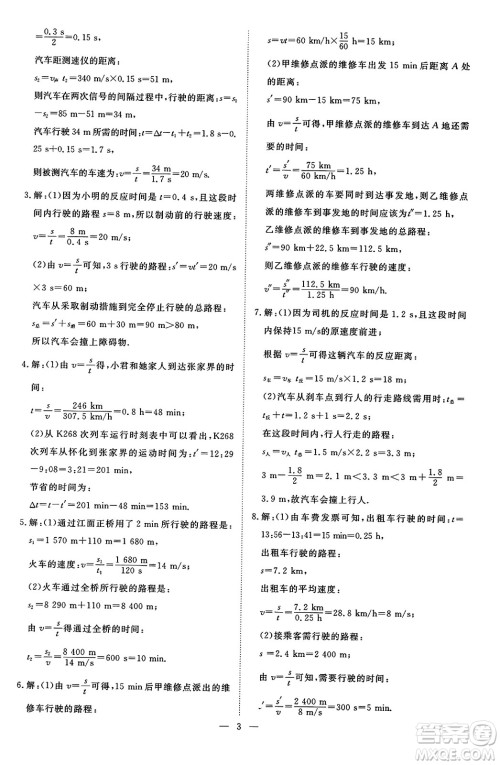 =0.3 s/2=0.15 s,
汽车距测速仪的距离:
s₂=v声t₂=340 m/s×0.15 s=51 m,
则汽车在两次信号的间隔过程中,行驶的距离:s=s₁
-s₂=85 m-51 m=34 m,
汽车行驶 34 m 所需的时间:t=Δt-t₁+t₂=1.8 s-
0.25 s+0.15 s=1.7 s,
则被测汽车的车速为:v=s/t=34 m/1.7 s=20 m/s.
3.解:(1)因为小明的反应时间是 t=0.4 s,且这段时
间内行驶的路程 s=8 m,所以制动前的行驶速度:
v=s/t=8 m/0.4 s=20 m/s.
(2)由 v=s/t可知,3 s 行驶的路程:s′=vt′=20 m/s
×3 s=60 m;
汽车从采取制动措施到完全停止行驶的总路程:
s总=s+s′=8 m+30 m=38 m>33 m.
所以汽车会撞上障碍物.
4.解:(1)由 v=s/t可得,小君和她家人到达张家界的时
间:
t=s/v=246 km/307.5 km/h=0.8 h=48 min.
(2)从 K268 次列车运行时刻表中可以看出,K268
次列车从怀化到张家界的运动时间为:t′=12:29
-9:08=3 h 21 min=201 min,
节省的时间:
Δt=t′-t=201 min-48 min=153 min.
5.解:(1)通过江面正桥用了 2 min 所行驶的路程:
s₁=1 570 m+110 m=1 680 m,
火车的速度:v=s₁/t₁=1 680 m/120 s=14 m/s.
(2)火车通过全桥所行驶的路程:
s₂=8 290 m+110 m=8 400 m,
由 v=s/t可得,通过全桥的时间:
t₂=s₂/v=8 400 m/14 m/s=600 s=10 min.
6.解:(1)由 v=s/t可得,15 min 后甲维修点派出的维
修车行驶的路程:
s=vt=60 km/h×15/60 h=15 km.
(2)甲维修点派的维修车出发 15 min 后距离 A 处
的距离:
s′=90 km-15 km=75 km,
由 v=s/t可得,甲维修点派的维修车到达 A 地还需
要的时间:
t′=s′/v′=75 km/60 km/h=1.25 h,
两维修点派的车要同时到达事发地的时间,
乙维修点派的维修车到事发地的行驶时间:
t″=t′=1.25 h,
乙维修点派的维修车到事发地的路程:
s″=22.5 km+90 km=112.5 km,
则乙维修点派的维修车行驶的速度:
v″=s″/t″=112.5 km/1.25 h=90 km/h.
7.解:(1)因为司机的反应时间是 1.2 s,且这段时间
内保持15 m/s的原速度前行,
根据 v=s/t可得这辆汽车的反应距离:
(2)汽车从刹车到停在行人的行走路线需用时 t总=
t反+t刹=1.2 s+1.8 s=3 s,
在这段时间中,行人行走的路程:
s人=v人t总=1.2 m/s×3 s=3.6 m,
因为3 m-1.8/2 m=2.1 m<3.6 m<3 m+1.8/2 m=
3.9 m,故汽车会撞上行人.
8.解:(1)由车费发票可知,出租车行驶的时间:t=
13:56-13:41=15 min=0.25 h,
出租车行驶的路程:
s=7.2 km,
出租车的平均速度:
v=s/t=7.2 km/0.25 h=28.8 km/h.
(2)接乘客需行驶的路程:
s=2.4 km=2 400 m,
由 v=s/t可得,需要的时间:
t′=s′/v′=2 400 m/8 m/s=300 s=5 min.
3